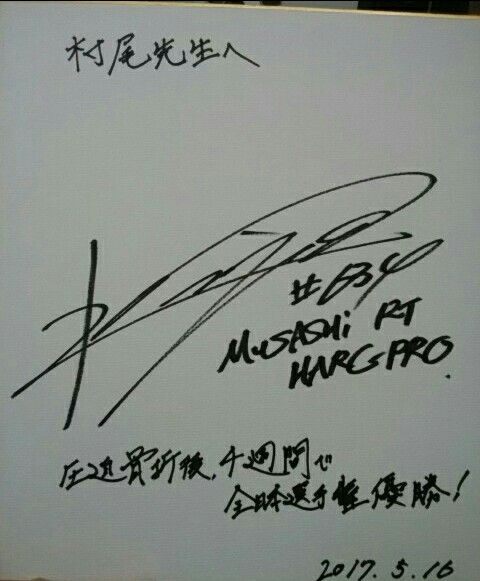 村尾先生へ
#634
MuSASHi RT
HARC-PRO.
圧迫骨折後、4週間で
全日本選手権優勝!
2017.5.16